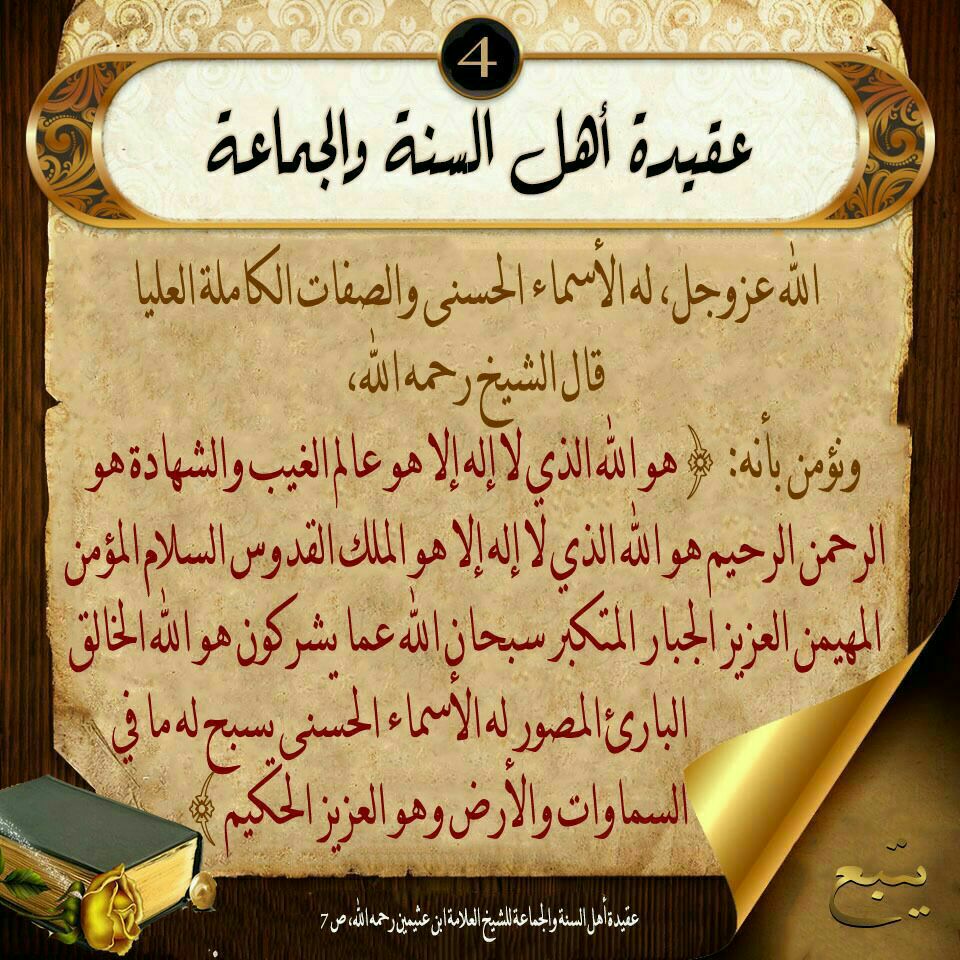 4
عقيدة أهل السنة والجماعة
الله عز وجل، له الأسماء الحسنى والصفات الكاملة العليا
قال الشيخ رحمه الله،
ونؤمن بأنه: ﴿هو الله الذي لا إله إلا هو عالم الغيب والشهادة هو
الرحمن الرحيم هو الله الذي لا إله إلا هو الملك القدوس السلام المؤمن
المهيمن العزيز الجبار المتكبر سبحان الله عما يشركون هو الله الخالق
البارئ المصور له الأسماء الحسنى يسبح له ما في
السماوات والأرض وهو العزيز الحكيم﴾
يتبع
عقيدة أهل السنة والجماعة للشيخ العلامة ابن عثيمين رحمه الله، ص 7